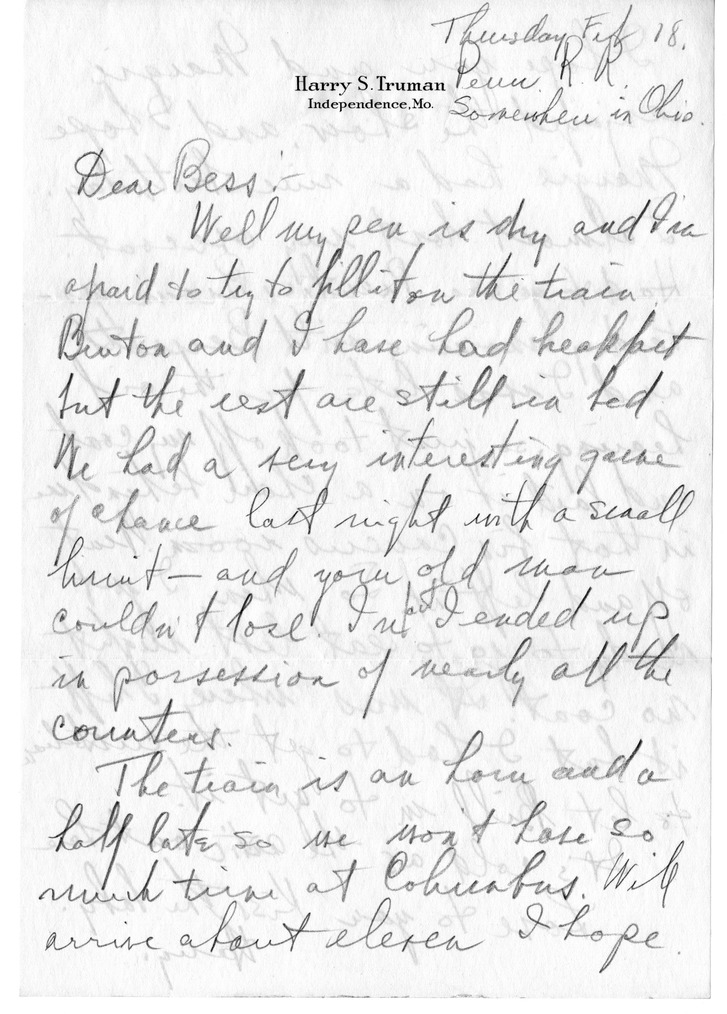 Thursday Feb 18.
Harry S. Truman
Independence, Mo.
Penn. R. R.
Somewhere in Ohio.
Dear Bess:-
Well my pen is dry and I'm
afraid to try to fill it on the train.
Benton and I have had breakfast
but the rest are still in bed
We had a very interesting game
of chance last night with a small
limit - and your old man
couldn't lose. In fact I ended up
in possession of nearly all the
counters.
The train is an hour and a
half late so we won't have so
much time at Columbus. Will
arrive about eleven I hope.